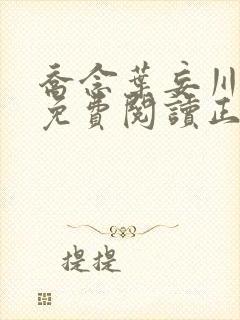 喬念葉妄川
免費閱讀正
提提